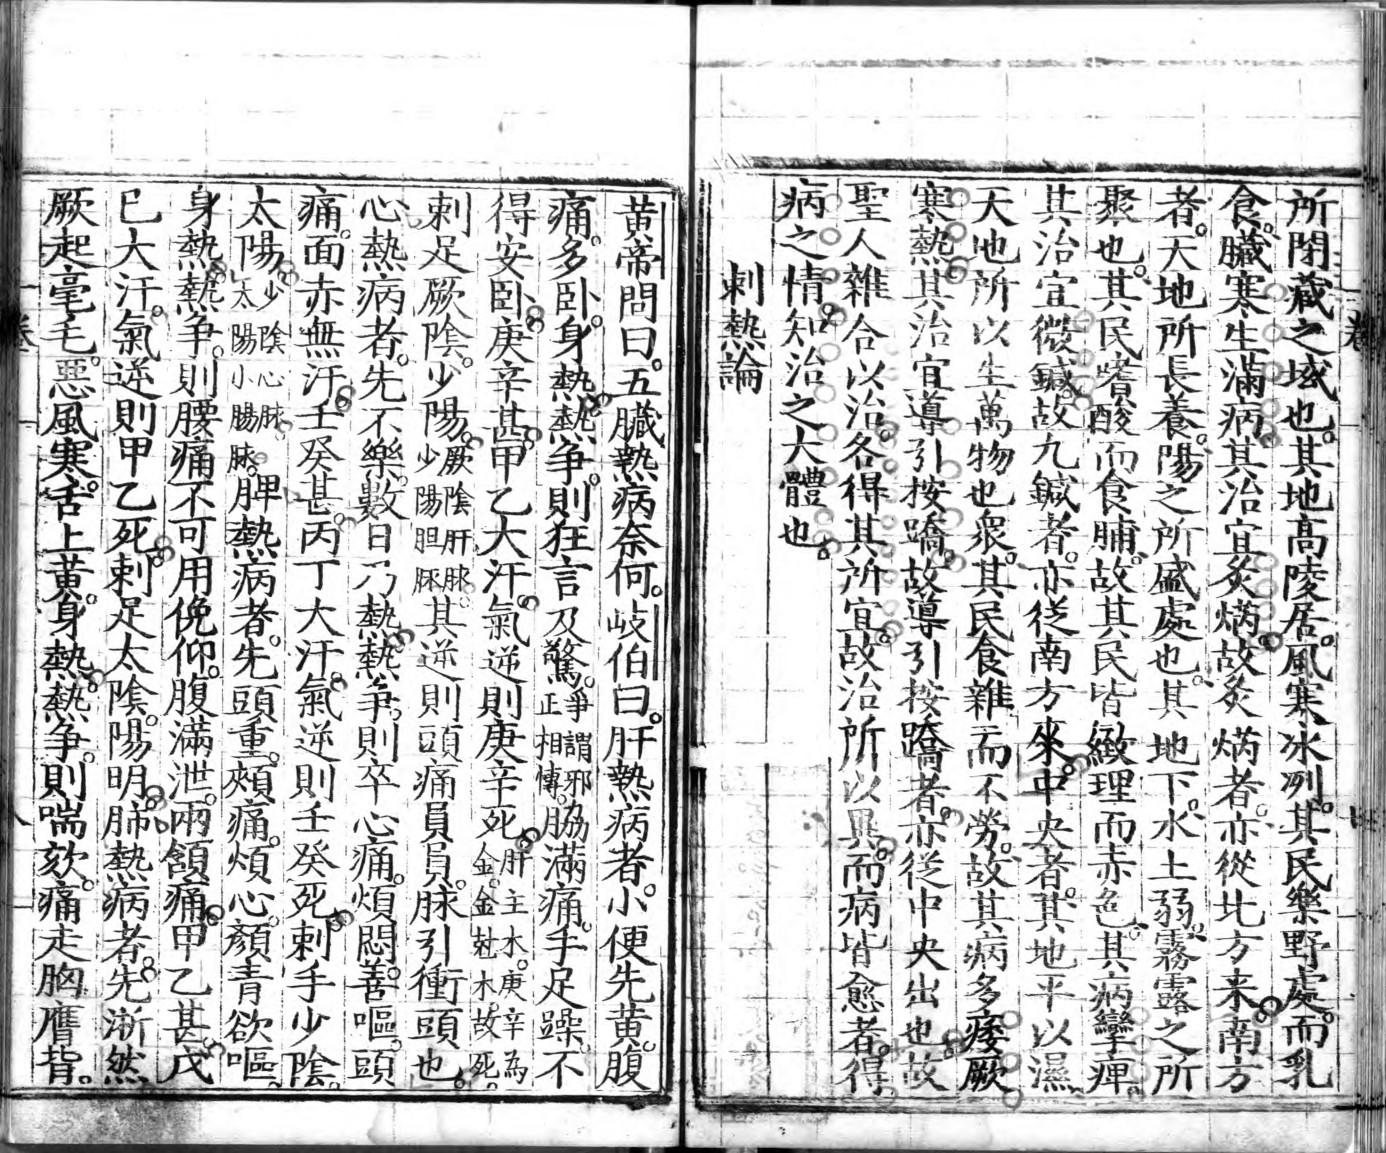 所閉藏之域也。其地高陵居。風寒冰冽。其民樂野處。而乳
食。臟寒生滿病。其治宜灸焫。故灸焫者。亦從北方来。南方
者。天地所長養。陽之所盛處也。其地下。水土弱。霧露之所
聚也。其民嗜酸而食胕。故其民皆緻理而赤色。其病攣痺。
其治宜微鍼。故九鍼者。亦從南方來。中央者。其地平以濕。
天地所以生萬物也衆。其民食雜而不勞。故其病多痿厥
寒熱。其治宜導引按蹻。故導引按蹻者。亦從中央出也。故
聖人雜合以治。各得其所宜。故治所以異。而病皆愈者。得
病之情。知治之大體也。
刺熱論
黄帝問曰。五臟熱病奈何。岐伯曰。肝熱病者。小便先黄。腹
痛。多卧。身熱。熱争。則狂言及驚。爭謂邪正相慱。脇滿痛。手足躁。不
得安卧。庚辛甚。甲乙大汗。氣逆則庚辛死。肝主木。庚辛為金。金尅木。故死。
刺足厥陰。少陽。厥陰肝脉。少陽胆脉。其逆則頭痛員員。脉引衝頭也。
心熱病者。先不樂。數日乃熱。熱争。則卒心痛。煩悶。善嘔。頭
痛。面赤無汗。壬癸甚。丙丁大汗。氣逆則壬癸死。刺手少陰。
太陽。少陰心脉。太陽小腸脉。脾熱病者。先頭重。頰痛。煩心。顏青欲嘔。
身熱。熱争。則腰痛不可用俛仰。腹滿泄。兩頷痛。甲乙甚。戊
已大汗。氣逆則甲乙死。刺足太陰。陽明。肺熱病者。先淅然
厥起毫毛。惡風寒。舌上黄。身熱。熱争。則喘欬。痛走胸膺背。